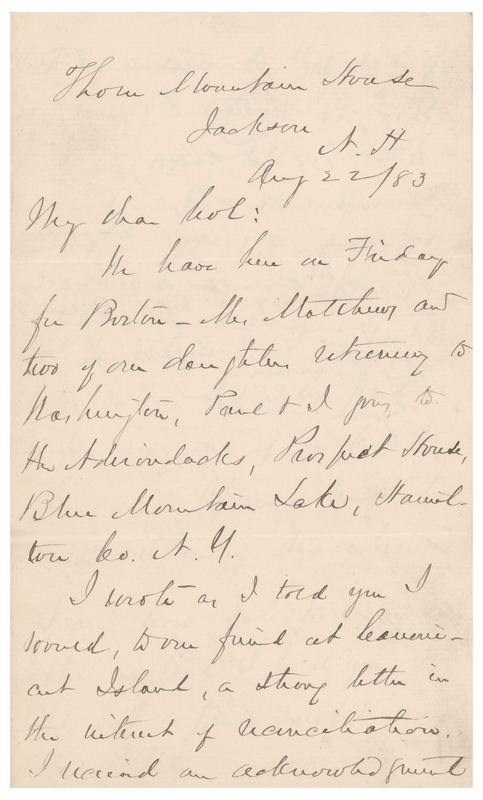 Thorn Mountain House
Jackson
N. H
Aug 22/83
My dear Col:
We leave here on Friday
for Boston – Mrs Matthews and
two of our daughters returning to
Washington, Paul & I going to
the Adirondacks, Prospect House,
Blue Mountain Lake, Hamil-
ton Co. N. Y.
I wrote as I told you I
would, to our friend at
Island, a strong letter in
the interest of reconciliation.
I received an acknowledgment